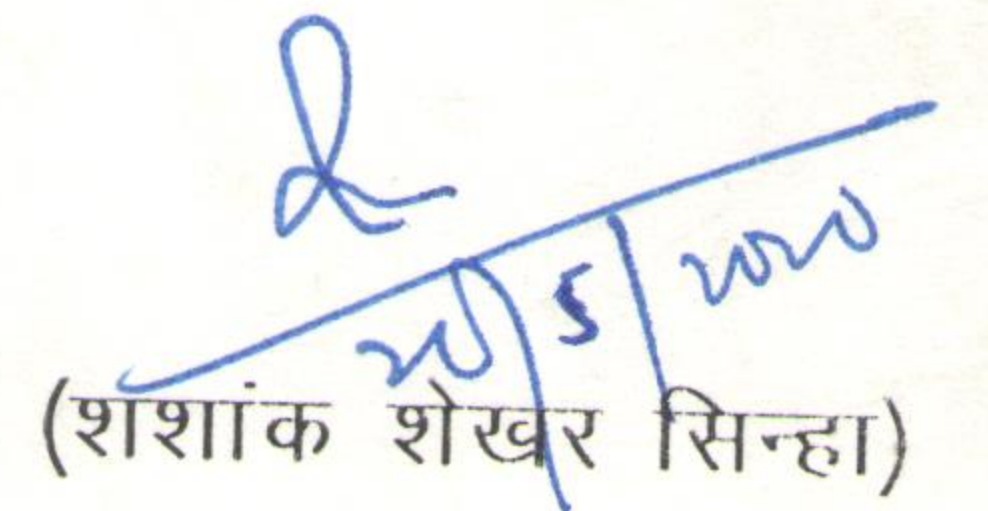 20/5/2020
(शशांक शेखर सिन्हा)